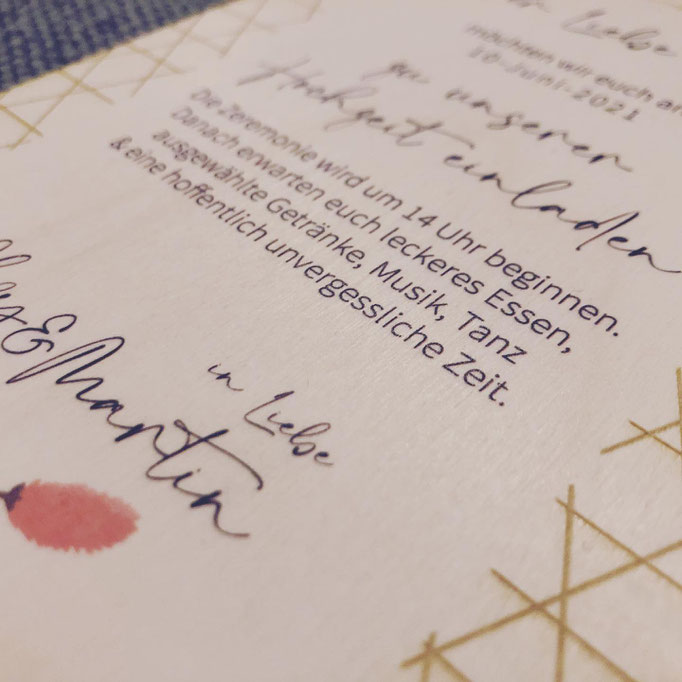 in Liebe
möchten wir euch am
10-Juni-2021
zu unserer
Hochzeit einladen
Die Zeremonie wird um 14 Uhr beginnen.
Danach erwarten euch leckeres Essen,
ausgewählte Getränke, Musik, Tanz
& eine hoffentlich unvergessliche Zeit.
in Liebe
&Martin